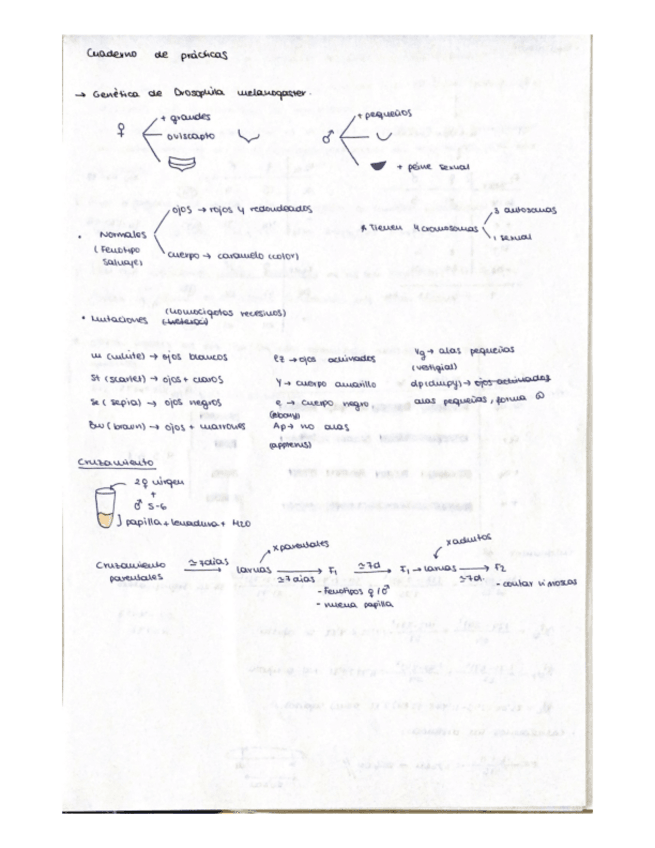 Cuaderno de prácticas
→ Genética de Drosophila melanogaster.
♀
+ grandes
oviscapto
♂
+ pequeños
+ peine sexual
• Normales
(Fenotipo
Salvaje)
ojos → rojos y redondeados
cuerpo → caramelo (color)
* Tienen 4 cromosomas
3 autosomas
1 sexual
• Mutaciones (homocigotos recesivos)
w (white) → ojos blancos
St (scarlet) → ojos + claros
Se (sepia) → ojos negros
Bw (brown) → ojos + marrones
Y → cuerpo amarillo
e → cuerpo negro
(ebony)
Ap → no alas
(apterus)
Vg → alas pequeñas
(vestigial)
dp (dumpy) →
alas pequeñas, forma
Cruzamiento
2♀ virgen
+
♂ 5-6
papilla + levadura + H2O
Cruzamiento
parentales
≃ 7 días
larvas
x parentales
≃ 7 días
F1
- Fenotipos ♀ ♂
- nueva papilla
≃ 7d
F1 → larvas
x adultos
≃ 7d
F2
- contar moscas